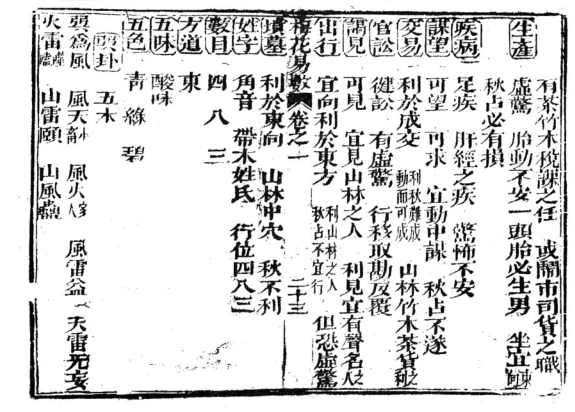 有茶竹木稅課之任 或鬧市司貨之職
生產 虛驚 胎動不安一頭胎必生男 坐宜東向
秋占必有損
疾病 足疾 肝經之疾 驚怖不安
謀望 可望 可求 宜動中謀 秋占不遂
交易 利於成交 利秋難成 動而可成 山林竹木茶貨
官訟 健訟 有虛驚 行移取勘反覆
謁見 可見 宜見山林之人 利見宜有聲名人
出行 宜向利於東方 利山林之人 秋占不宜行 但恐虛驚
梅花易數 卷之一 二十三
墳墓 利於東向 山林中穴 秋不利
姓字 角音 帶木姓氏 行位四八三
數目 四 八 三
方道 東
五味 酸味
五色 青 綠 碧
巽卦 五木
巽為風 風天小畜 風火家人 風雷益 天雷无妄
火雷噬嗑 山雷頤 山風蠱